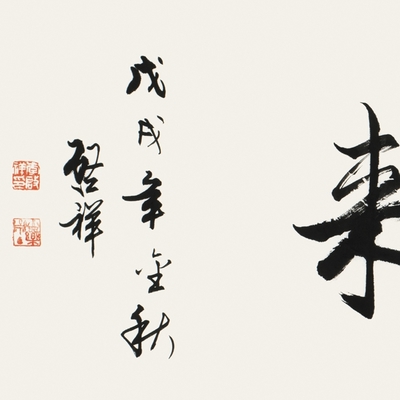 来
戊戌年金秋
启祥